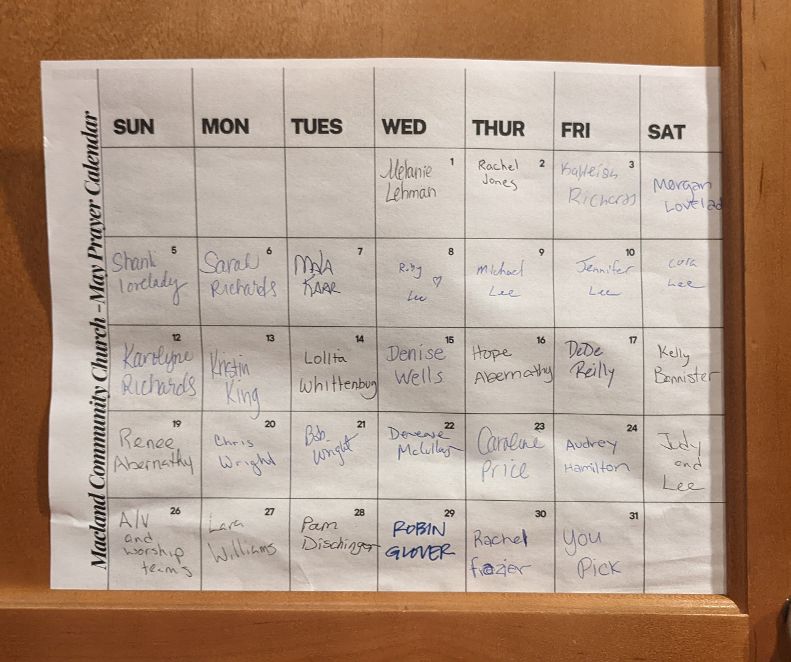 Macland Community Church - May Prayer Calendar
SUN MON TUES WED THUR FRI SAT
1
Melanie
Lehman
2
Rachel
Jones
3
Kayleigh
Richards
Morgan
Lovelad
5
Shank
lovelady
6
Sarah
Richards
7
KAAR
8
Ruby
Lee
9
Michael
Lee
10
Jennifer
Lee
Cora
Lee
12
Karolyne
Richards
13
Kristin
King
14
Lolita
Whittenburg
15
Denise
Wells
16
Hope
Abernathy
17
DeDe
Reilly
Kelly
Bannister
19
Renee
Abernathy
20
Chris
Wright
21
Bob
Wright
22
23
Caroline
Price
24
Audrey
Hamilton
Judy
and
Lee
26
A/V
and
worship
teams
27
Lara
Williams
28
Pam
Dischinger
29
ROBIN
GLOVER
30
Rachel
frazier
31
You
Pick